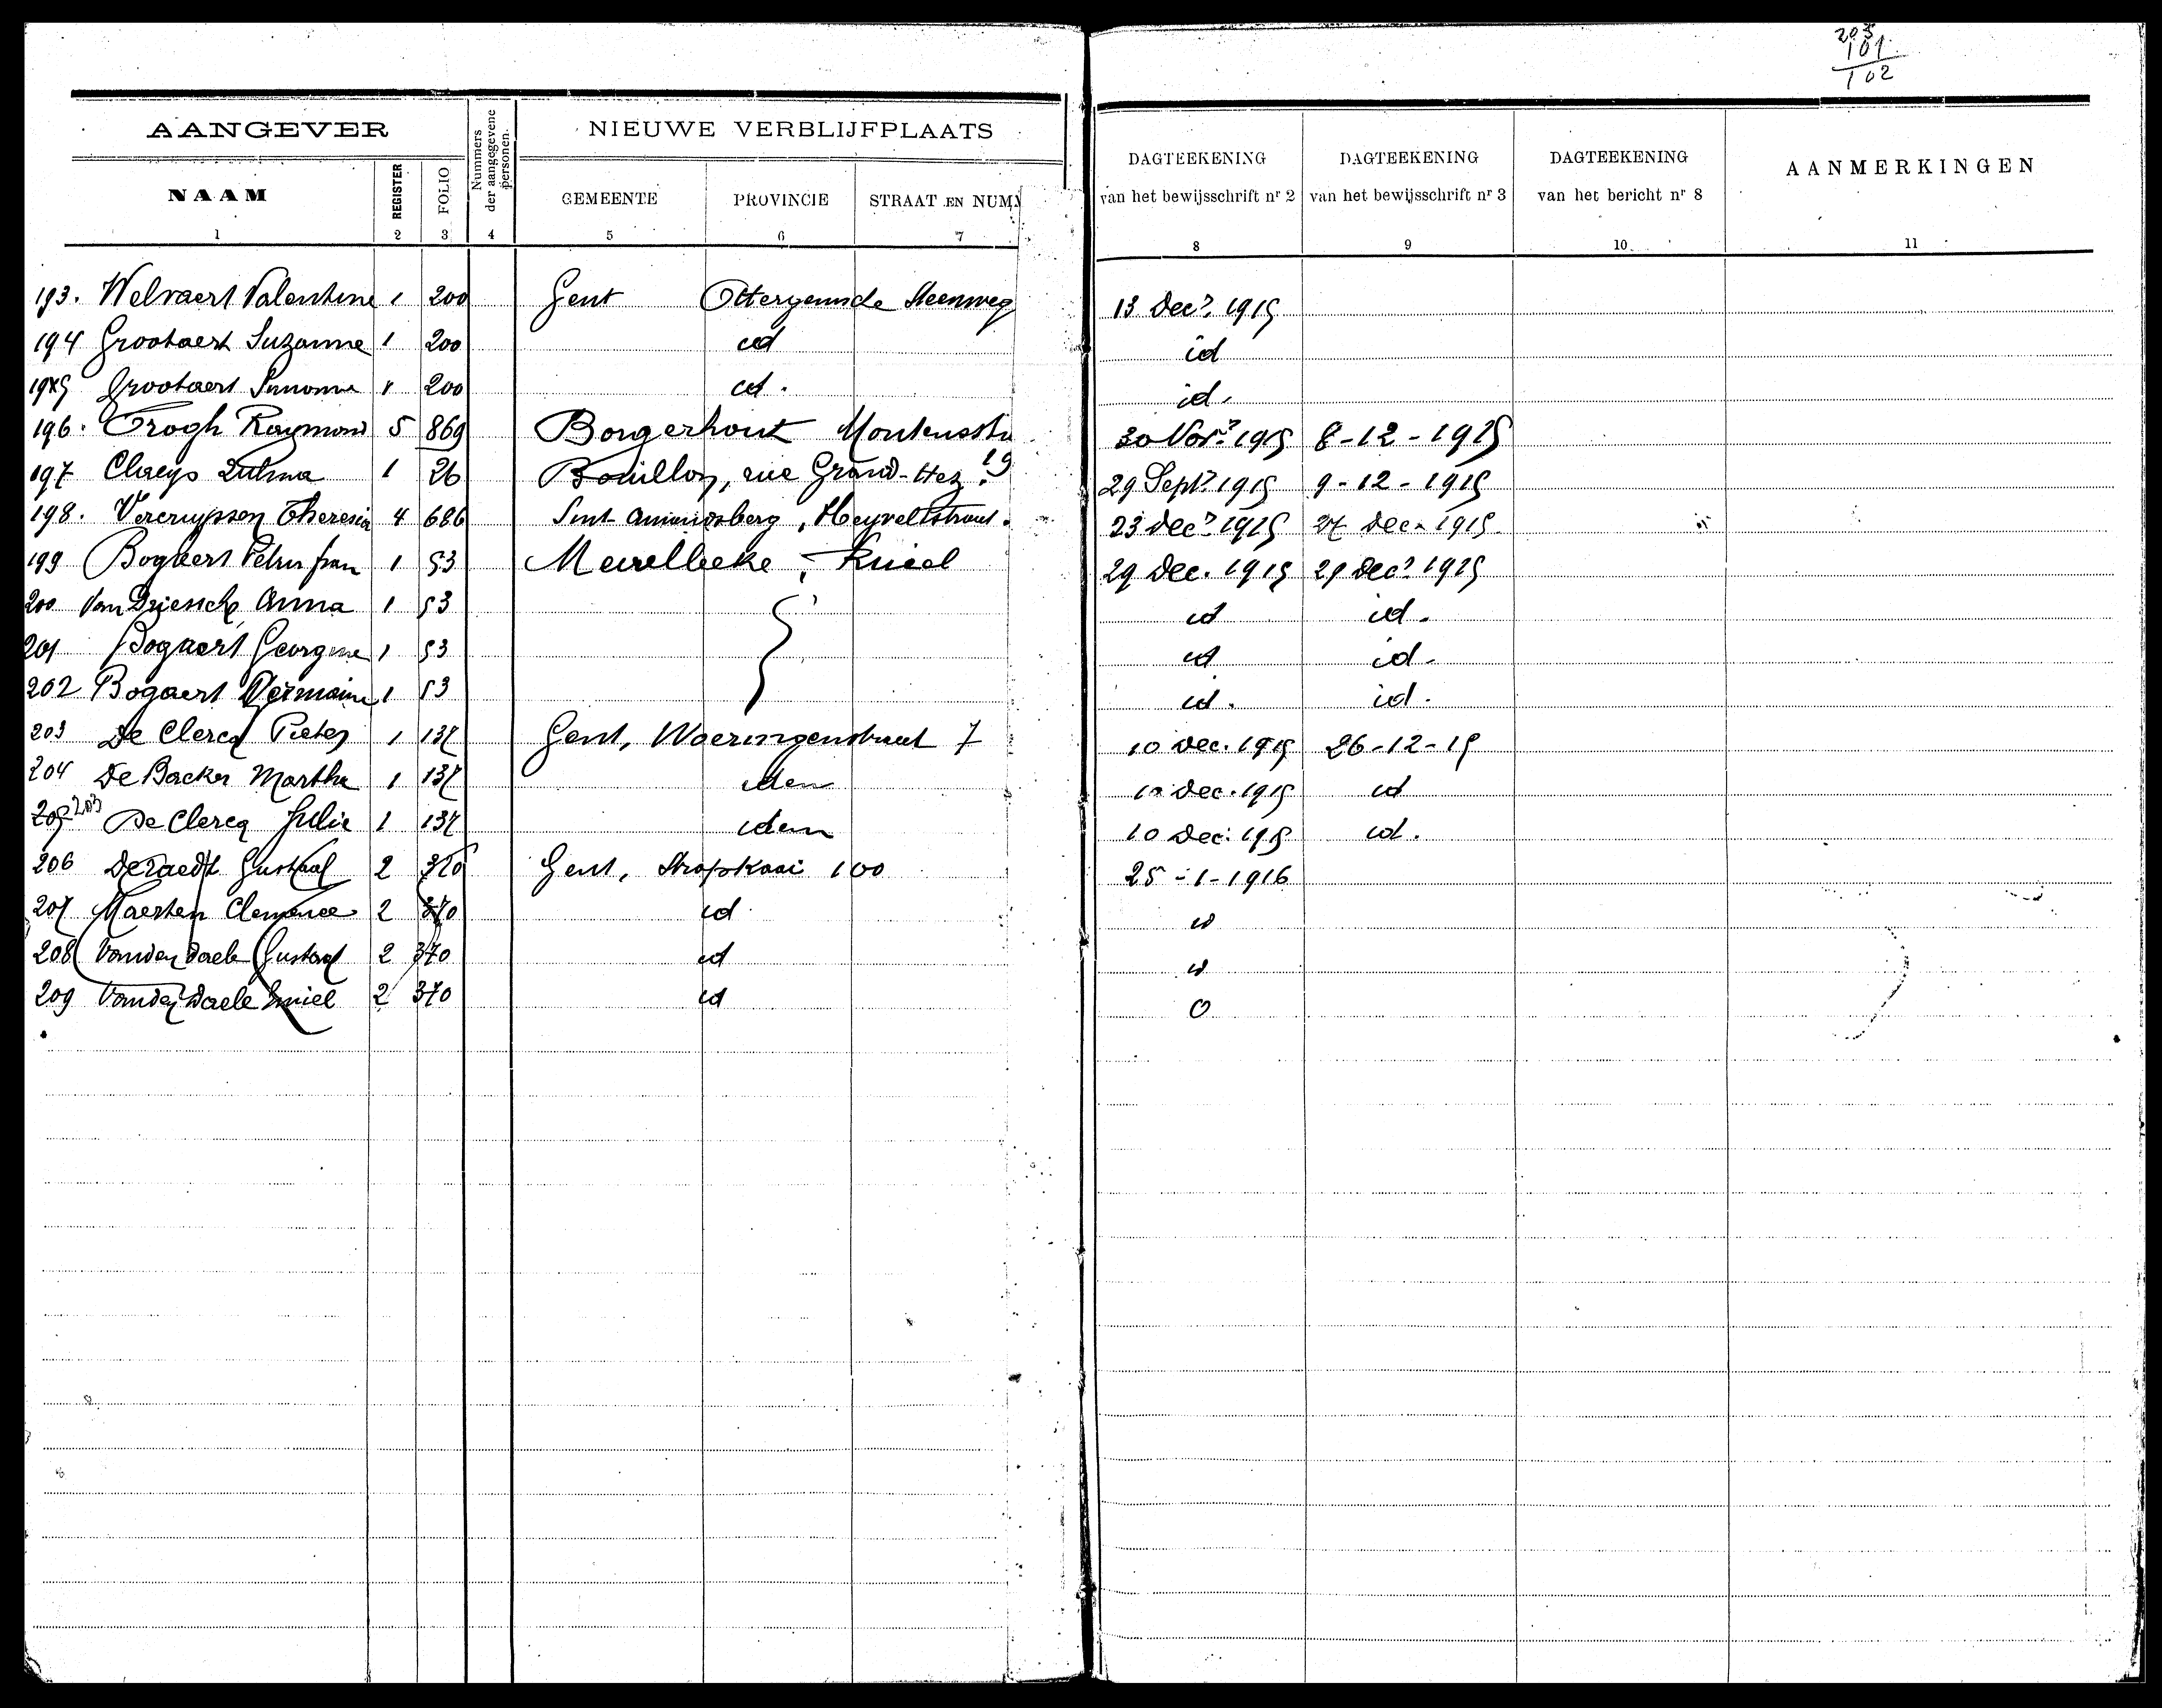 203
101
102
AANGEVER
Nummers der aangegevene personen.
NIEUWE VERBLIJFPLAATS
NAAM REGISTER FOLIO GEMEENTE PROVINCIE STRAAT EN NUM
DAGTEEKENING van het bewijsschrift nr 2
DAGTEEKENING van het bewijsschrift nr 3
DAGTEEKENING van het bericht nr 8
AANMERKINGEN
1 2 3 4 5 6 7 8 9 10 11
193. Welvaert Valentine 1 200 Gent Steenweg 13 Dec. 1915
194 Grootaert Suzanne 1 200 id id
195 Grootaert 1 200 id. id.
196. Trogh Raymond 5 869 Borgerhout 30 Nov. 1915 8-12-1915
197 Claeys Zulma 1 26 Bouillon, rue Grand-Hez 19 29 Sept. 1915 9-12-1915
198. Vercruyssen Theresia 4 686 Sint Amandsberg, Heyveltstraat. 23 Dec. 1915 27 Dec. 1915
199 Bogaert Petrus fran 1 53 Meirelbeke, 29 Dec. 1915 29 Dec. 1915
200 Van Driessche Anna 1 53 id id.
201 Bogaert Georgine 1 53 id id.
202 Bogaert Germaine 1 53 id. id.
203 De Clercq Pieter 1 137 Gent, Woeringenstraat 7 10 Dec. 1915 26-12-15
204 De Backer Martha 1 137 idem 10 Dec. 1915 id
205 203 De Clercq Julie 1 137 idem 10 Dec. 1915 id.
206 Deraedt Gustaaf 2 370 Gent, Stropkaai 100 25-1-1916
207 Maerten Clemence 2 370 id id
208 Vanden Daele Gustaaf 2 370 id id
209 Vanden Daele Emiel 2 370 id